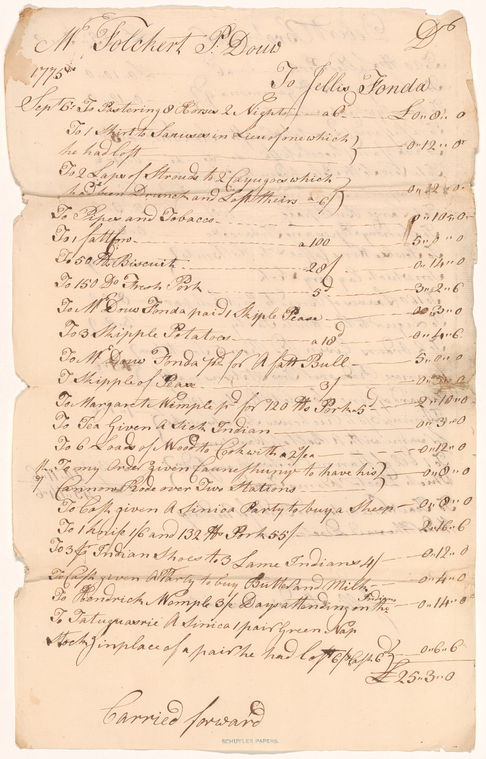 Mr. Folckert P. Douw Dr
1775
To Jellis Fonda
Sept 6 To Pastering 8 Horses 2 Nights a 6 £0„8„0
To 1 Shirt to in Lieu of one which
he had lost 0„12„0
To 2 Laps of Stroud to 2 Cayugas which
been Drunck and Lost theirs a 6/ 0„12„0
To Pipes and Tobacco 0„10„0
To 1 fatt Cow a 100 5„0„0
To 50 lb Biscuit 28/ 0„14„0
To 150 Do Fresh Pork 5d 3„2„6
To Mr Douw Fonda paid 1 Skiple Pease 0„3„0
To 3 Skipple Potatoes a 18d 0„4„6
To Mr Douw Fonda pd for A fatt Bull 5„0„0
1 Skipple of Pease 3/ 0„3„0
To Margaret Wemple pd for 120 lb Pork a 5d 2„10„0
To Tea Given a Sick Indian 0„3„0
To 6 Loads of Wood to Cook with a 2/ea 0„12„0
To my Order given to have his
Cannow Rode over Two Stations 0„8„0
To Cash given A Sinica Party to buy a Sheep 0„8„0
To 1 knife 1/6 and 132 lb Pork 55/ 2„16„6
To 3 pr Indian Shoes to 3 Lame Indians 4/ 0„12„0
To Cash given A Party to buy Butter and Milk 0„4„0
To Hendrick Wemple 3½ Days attending on the Indians 0„14„0
To Tatuquassie A Sinica 1 pair Green Nap
Stock in place of a pair he had lost 6/ 0„6„6
£25„3„0
Carried forward
SCHUYLER PAPERS.